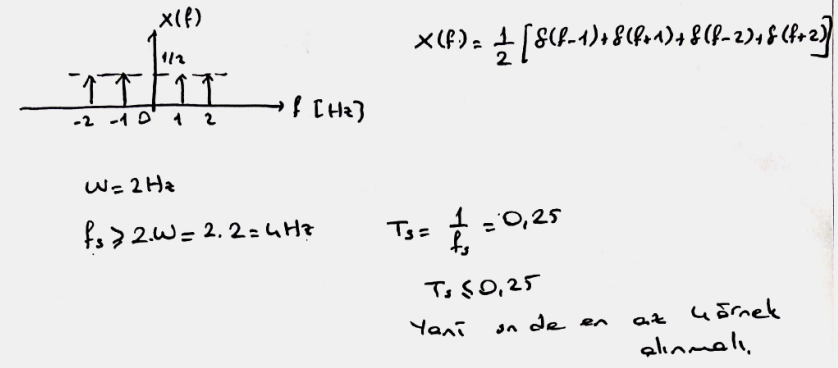 X(f)
1/2
-2 -1 0 1 2 f [Hz]
X(f) = 1/2 [δ(f-1)+δ(f+1)+δ(f-2)+δ(f+2)]
W = 2Hz
fs ≥ 2.W = 2.2 = 4Hz
Ts = 1/fs = 0,25
Ts ≤ 0,25
Yani sn de en az 4 örnek
alınmalı.